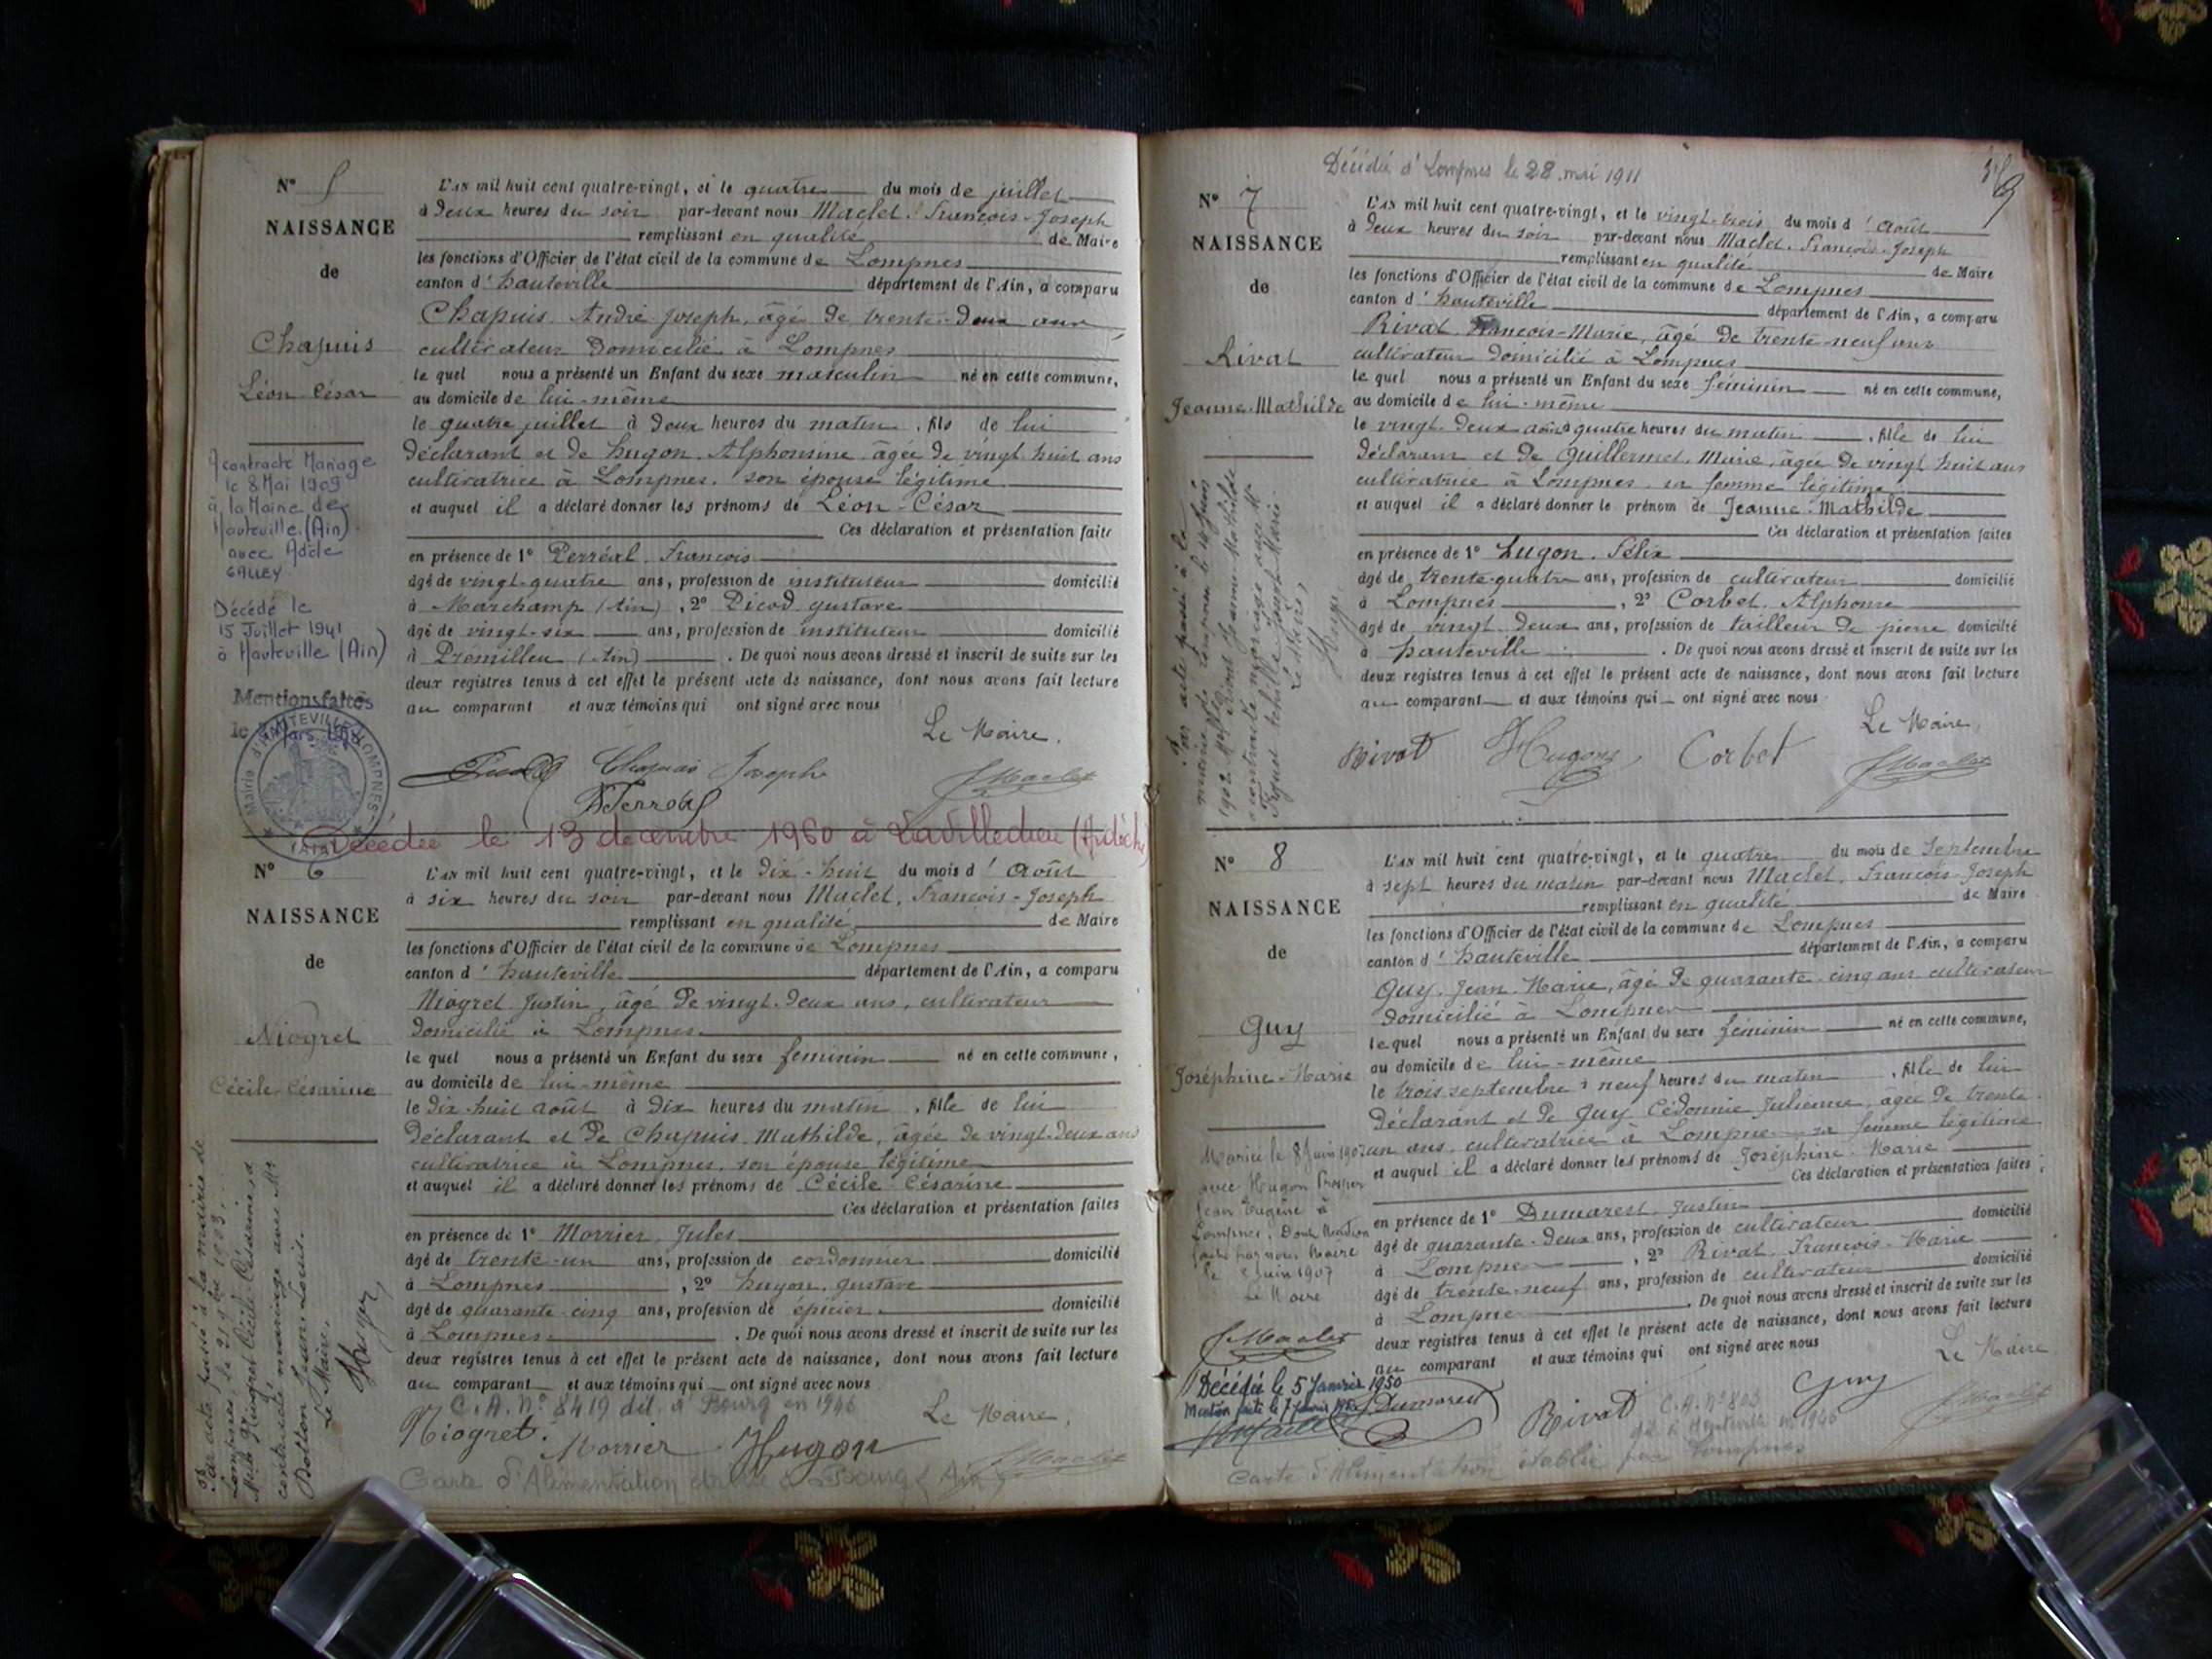 N° 5
NAISSANCE
de
Chapuis
Léon-César
A contracté Mariage
le 8 Mai 1909
à la Mairie de
Hauteville (Ain)
avec Adèle
GALLEY
Décédé le
15 Juillet 1941
à Hauteville (Ain)
Mentions faites
le
Mairie d'HAUTEVILLE-LOMPNES
(AIN)
L'AN mil huit cent quatre-vingt, et le quatre du mois de juillet
à deux heures du soir par-devant nous Maclet, François-Joseph
remplissant en qualité de Maire
les fonctions d'Officier de l'état civil de la commune de Lompnes
canton d'hauteville département de l'Ain, a comparu
Chapuis, André Joseph, âgé de trente-deux ans
cultivateur domicilié à Lompnes
le quel nous a présenté un Enfant du sexe masculin né en cette commune,
au domicile de lui-même
le quatre juillet à deux heures du matin, fils de lui
déclarant et de hugon, Alphonsine, âgée de vingt huit ans
cultivatrice à Lompnes, son épouse légitime
et auquel il a déclaré donner les prénoms de Léon-César
Ces déclaration et présentation faite
en présence de 1° Perréal, François
âgé de vingt-quatre ans, profession de instituteur domicilié
à Marchamp (Ain), 2° Picod, gustave
âgé de vingt-six ans, profession de instituteur domicilié
à Prémillieu (Ain). De quoi nous avons dressé et inscrit de suite sur les
deux registres tenus à cet effet le présent acte de naissance, dont nous avons fait lecture
au comparant et aux témoins qui ont signé avec nous
Le Maire,
Picod Chapuis Joseph
Maclet
Décédée le 13 décembre 1960 à Lavilledieu (Ardèche)
N° 6
NAISSANCE
de
Niogret
Cécile-Césarine
Par acte passé à la mairie de
Lompnes, le 21 9bre 1903,
Melle Niogret Cécile Césarine, a
contracté mariage avec Mr
Bolton Jean-Louis.
Le Maire,
L'AN mil huit cent quatre-vingt, et le dix-huit du mois d'Août
à six heures du soir par-devant nous Maclet, François-Joseph
remplissant en qualité de Maire
les fonctions d'Officier de l'état civil de la commune de Lompnes
canton d'hauteville département de l'Ain, a comparu
Niogret Justin, âgé de vingt-deux ans, cultivateur
domicilié à Lompnes
le quel nous a présenté un Enfant du sexe féminin né en cette commune,
au domicile de lui-même
le dix-huit août à dix heures du matin, fille de lui
déclarant et de Chapuis, Mathilde, âgée de vingt-deux ans
cultivatrice à Lompnes, son épouse légitime
et auquel il a déclaré donner les prénoms de Cécile Césarine
Ces déclaration et présentation faites
en présence de 1° Morrier, Jules
âgé de trente-un ans, profession de cordonnier domicilié
à Lompnes, 2° hugon, gustave
âgé de quarante-cinq ans, profession de épicier domicilié
à Lompnes. De quoi nous avons dressé et inscrit de suite sur les
deux registres tenus à cet effet le présent acte de naissance, dont nous avons fait lecture
au comparant et aux témoins qui ont signé avec nous
C.A. N° 8419 dél. à Bourg en 1946
Le Maire,
Niogret. Morrier Hugon
Maclet
Carte d'Alimentation établie à Bourg (Ain)
Décédée à Lompnes le 28 mai 1911
9
N° 7
NAISSANCE
de
Rival
Jeanne-Mathilde
L'AN mil huit cent quatre-vingt, et le vingt-trois du mois d'Août
à deux heures du soir par-devant nous Maclet, François-Joseph
remplissant en qualité de Maire
les fonctions d'Officier de l'état civil de la commune de Lompnes
canton d'hauteville département de l'Ain, a comparu
Rival François-Marie, âgé de trente-neuf ans
cultivateur domicilié à Lompnes
le quel nous a présenté un Enfant du sexe féminin né en cette commune,
au domicile de lui-même
le vingt-deux août à quatre heures du matin, fille de lui
déclarant et de Guillermet, Marie, âgée de vingt huit ans
cultivatrice à Lompnes, sa femme légitime
et auquel il a déclaré donner le prénom de Jeanne-Mathilde
Ces déclaration et présentation faites
en présence de 1° hugon, Félix
âgé de trente-quatre ans, profession de cultivateur domicilié
à Lompnes, 2° Corbet, Alphonse
âgé de vingt-deux ans, profession de tailleur de pierre domicilié
à hauteville. De quoi nous avons dressé et inscrit de suite sur les
deux registres tenus à cet effet le présent acte de naissance, dont nous avons fait lecture
au comparant et aux témoins qui ont signé avec nous
Le Maire,
Rival Hugon Corbet
Maclet
Par acte passé à la
mairie de Lompnes le 14 Juin
1902 Melle Rival Jeanne-Mathilde
a contracté mariage avec Mr
Le Maire,
N° 8
NAISSANCE
de
Guy
Joséphine-Marie
Mariée le 8 Juin 1907
avec Hugon Prosper
Jean Eugène à
Lompnes, Dont Mention
faite par nous Maire
le 8 Juin 1907
Le Maire
Maclet
Décédée le 5 Janvier 1950
L'AN mil huit cent quatre-vingt, et le quatre du mois de Septembre
à sept heures du matin par-devant nous Maclet, François-Joseph
remplissant en qualité de Maire
les fonctions d'Officier de l'état civil de la commune de Lompnes
canton d'hauteville département de l'Ain, a comparu
Guy, Jean-Marie, âgé de quarante-cinq ans cultivateur
domicilié à Lompnes
le quel nous a présenté un Enfant du sexe féminin né en cette commune,
au domicile de lui-même
le trois septembre à neuf heures du matin, fille de lui
déclarant et de Guy Cédonnie Julienne, âgée de trente-
un ans, cultivatrice à Lompnes sa femme légitime
et auquel il a déclaré donner les prénoms de Joséphine-Marie
Ces déclaration et présentation faites
en présence de 1° Dumarest, Justin
âgé de quarante-deux ans, profession de cultivateur domicilié
à Lompnes, 2° Rival, François-Marie
âgé de trente-neuf ans, profession de cultivateur domicilié
à Lompnes. De quoi nous avons dressé et inscrit de suite sur les
deux registres tenus à cet effet le présent acte de naissance, dont nous avons fait lecture
au comparant et aux témoins qui ont signé avec nous
Le Maire
Dumarest Rival Guy
Maclet
C.A. N° 803
dél. à Hauteville en 1946
Carte d'Alimentation établie par Lompnes